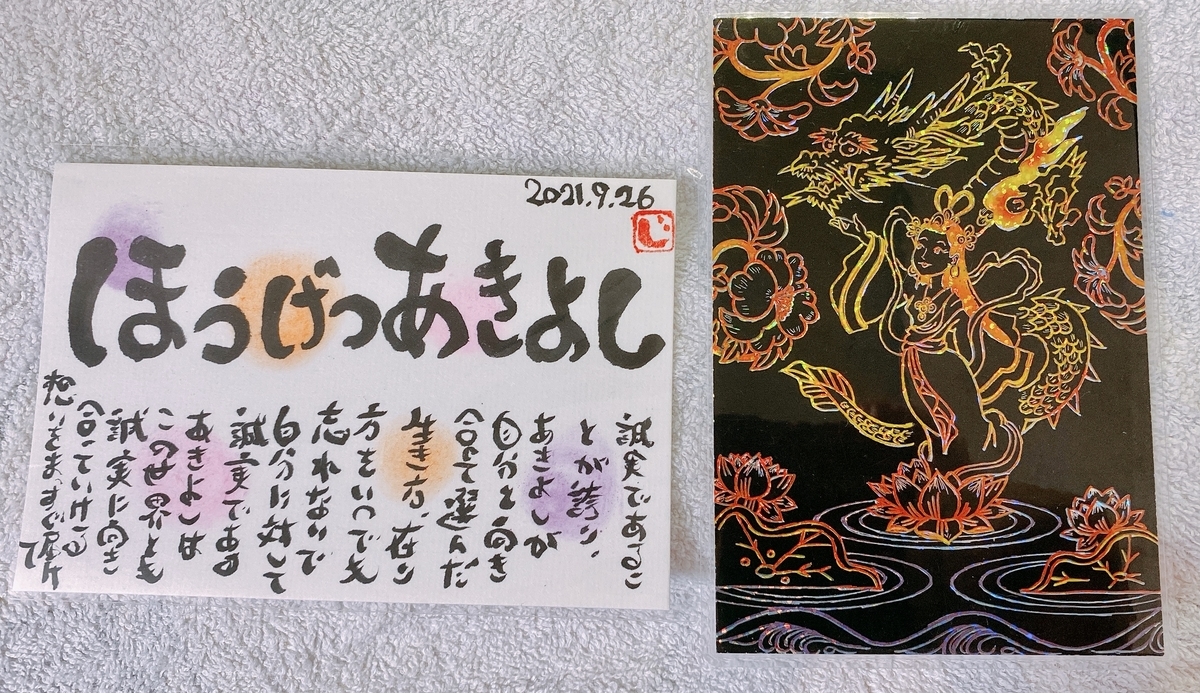 2021.9.26
じ
ほうげつあきよし
誠実であるこ
とが誇り、
あきよしが
自分と向き
合って選んだ
生き方、在り
方をいつでも
忘れないで
自分に対して
誠実である
あきよしは
この世界とも
誠実に向き
合っていける
想いをまっすぐ届けて